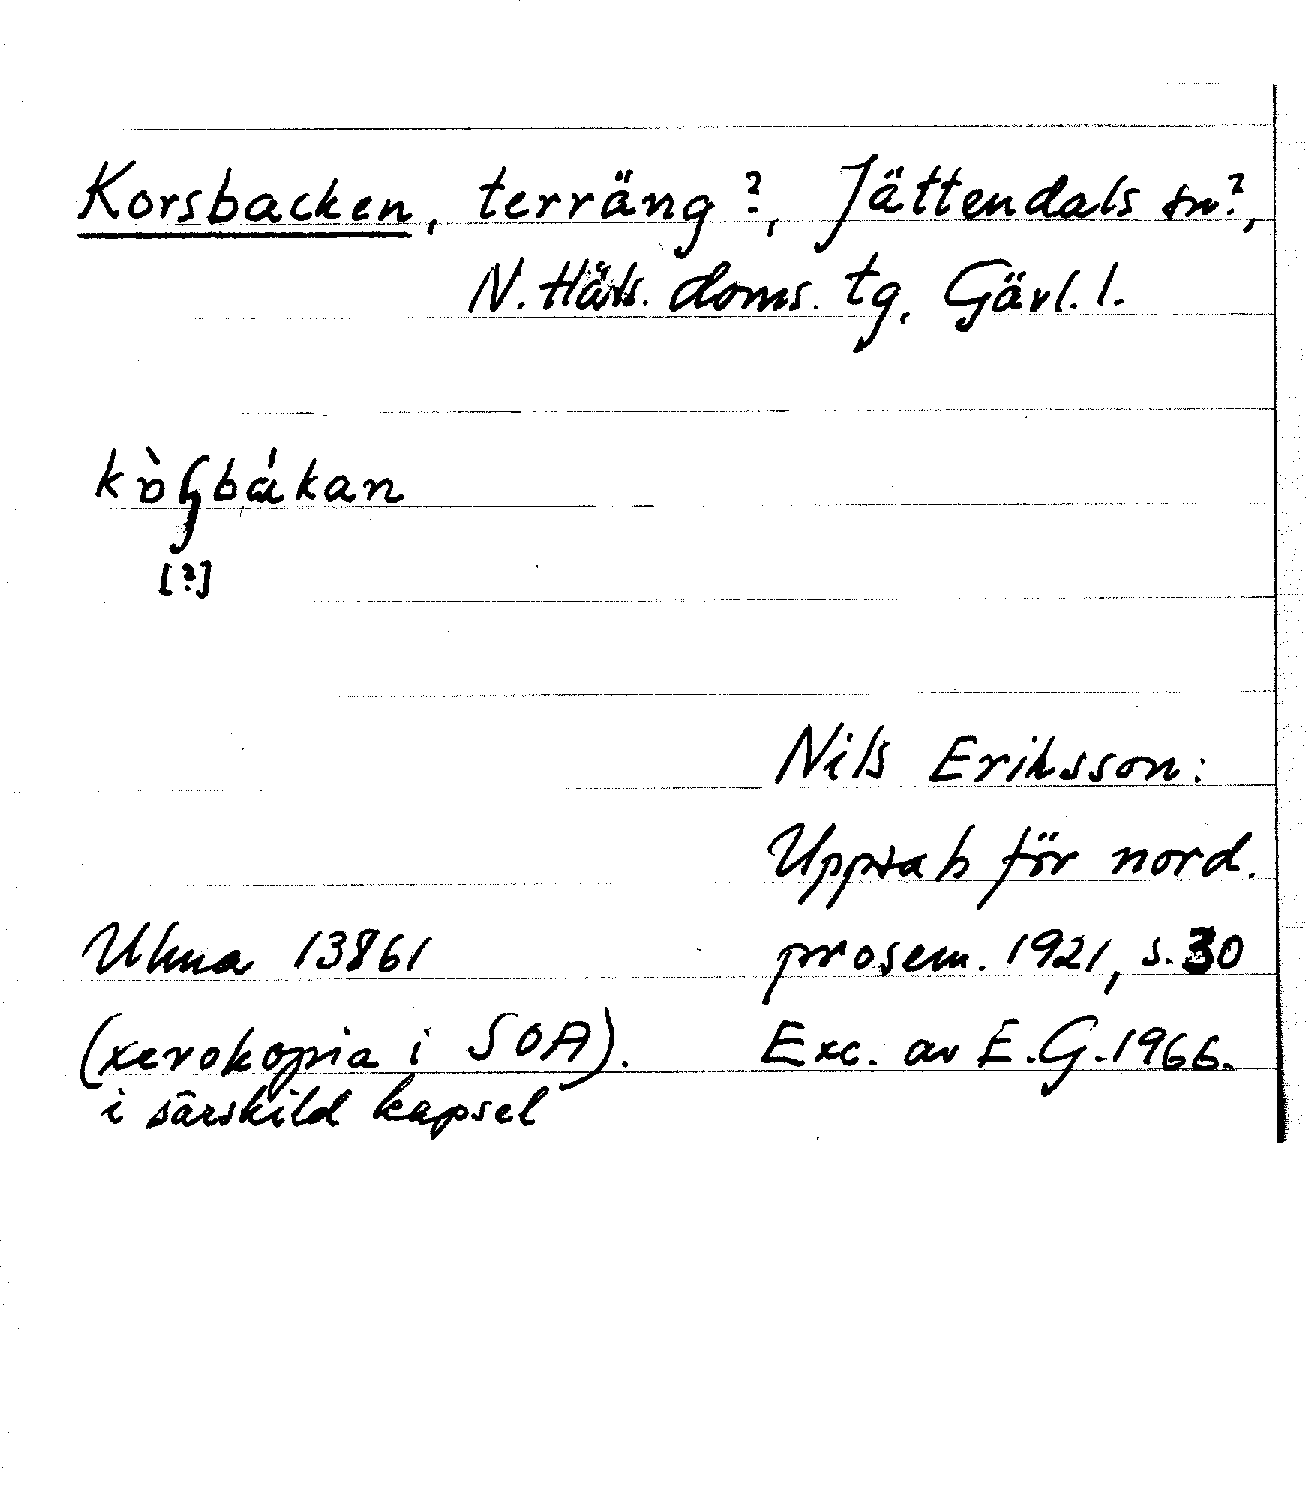 Korsbacken, terräng?, Jättendals sn?,
N. Häls. doms. tg, Gävl. l.
[?]
Nils Eriksson:
Uppsats för nord.
Ulma 13861 prosem. 1921, s. 30
(xerokopia i SOA). Exc. av E.G. 1966.
i särskild kapsel